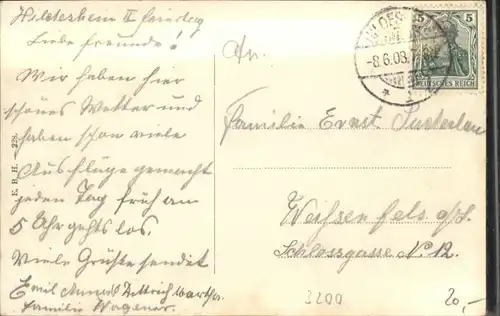 Hildesheim II
Liebe Freunde!
Wir haben hier
schönes Wetter und
haben schon viele
Ausflüge gemacht
jeden Tag früh am
5 Uhr gehts los.
Viele Grüße sendet
Emil
Familie Wagener.
E. R. H. — 228.
An.
Familie Ernst
Weißenfels a/S.
Schlossgasse N. 12.
-8.6.08.
5 5
DEUTSCHES REICH
3200
20,-